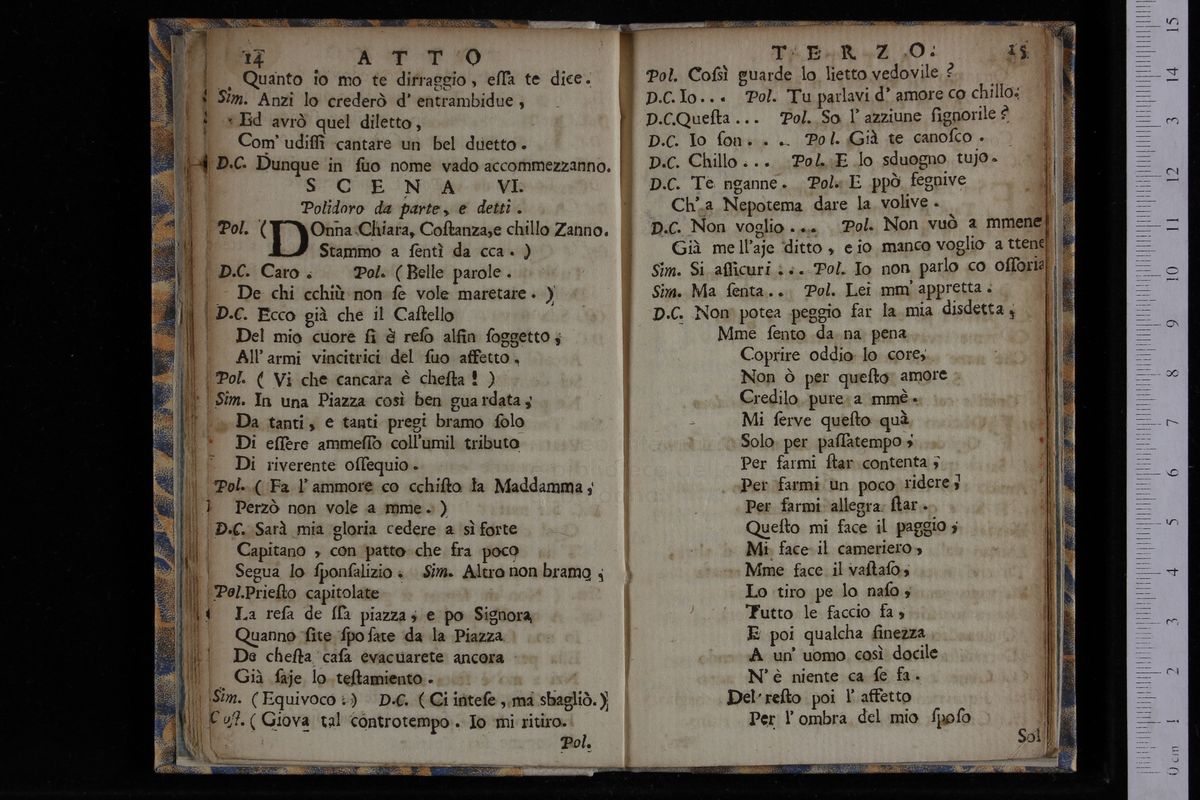 14 ATTO
Quanto io mo te dirraggio, eſſa te dice.
Sim. Anzi lo crederò d' entrambidue,
Ed avrò quel diletto,
Com' udiſſi cantare un bel duetto.
D.C. Dunque in ſuo nome vado accommezzanno.
SCENA VI.
Polidoro da parte, e detti.
Pol. (DOnna Chiara, Coſtanza, e chillo Zanno.
Stammo a ſentì da cca. )
D.C. Caro. Pol. (Belle parole.
De chi cchiù non ſe vole maretare. )
D.C. Ecco già che il Caſtello
Del mio cuore ſi è reſo alfin ſoggetto;
All' armi vincitrici del ſuo affetto.
Pol. ( Vi che cancara è cheſta! )
Sim. In una Piazza così ben guardata;
Da tanti, e tanti pregi bramo ſolo
Di eſſere ammeſſo coll'umil tributo
Di riverente oſſequio.
Pol. ( Fa l' ammore co cchiſto la Maddamma;
Perzò non vole a mme. )
D.C. Sarà mia gloria cedere a sì forte
Capitano, con patto che fra poco
Segua lo ſponſalizio. Sim. Altro non bramo;
Pol. Prieſto capitolate
La reſa de ſſa piazza; e po Signora
Quanno ſite ſpoſate da la Piazza
De cheſta caſa evacuarete ancora
Già ſaje lo teſtamiento.
Sim. (Equivoco:) D.C. (Ci inteſe, ma sbagliò.)
Coſt. (Giova tal controtempo. Io mi ritiro.
Pol.
TERZO. 15
Pol. Coſsì guarde lo lietto vedovile?
D.C. Io... Pol. Tu parlavi d' amore co chillo;
D.C. Queſta... Pol. So l' azziune ſignorile?
D.C. Io ſon... Pol. Già te canoſco.
D.C. Chillo... Pol. E lo sduogno tujo.
D.C. Te nganne. Pol. E ppò fegnive
Ch' a Nepotema dare la volive.
D.C. Non voglio... Pol. Non vuò a mmene
Già me ll'aje ditto, e io manco voglio a ttene
Sim. Si aſſicuri... Pol. Io non parlo co oſſoria
Sim. Ma ſenta.. Pol. Lei mm' appretta.
D.C. Non potea peggio far la mia disdetta;
Mme ſento da na pena
Coprire oddio lo core;
Non ò per queſto amore
Credilo pure a mmè.
Mi ſerve queſto quà
Solo per paſſatempo;
Per farmi ſtar contenta;
Per farmi un poco ridere;
Per farmi allegra ſtar.
Queſto mi face il paggio;
Mi face il cameriero,
Mme face il vaſtaſo,
Lo tiro pe lo naſo,
Tutto le faccio fa,
E poi qualcha finezza
A un' uomo così docile
N' è niente ca ſe fa.
Del reſto poi l' affetto
Per l' ombra del mio ſpoſo
Sol